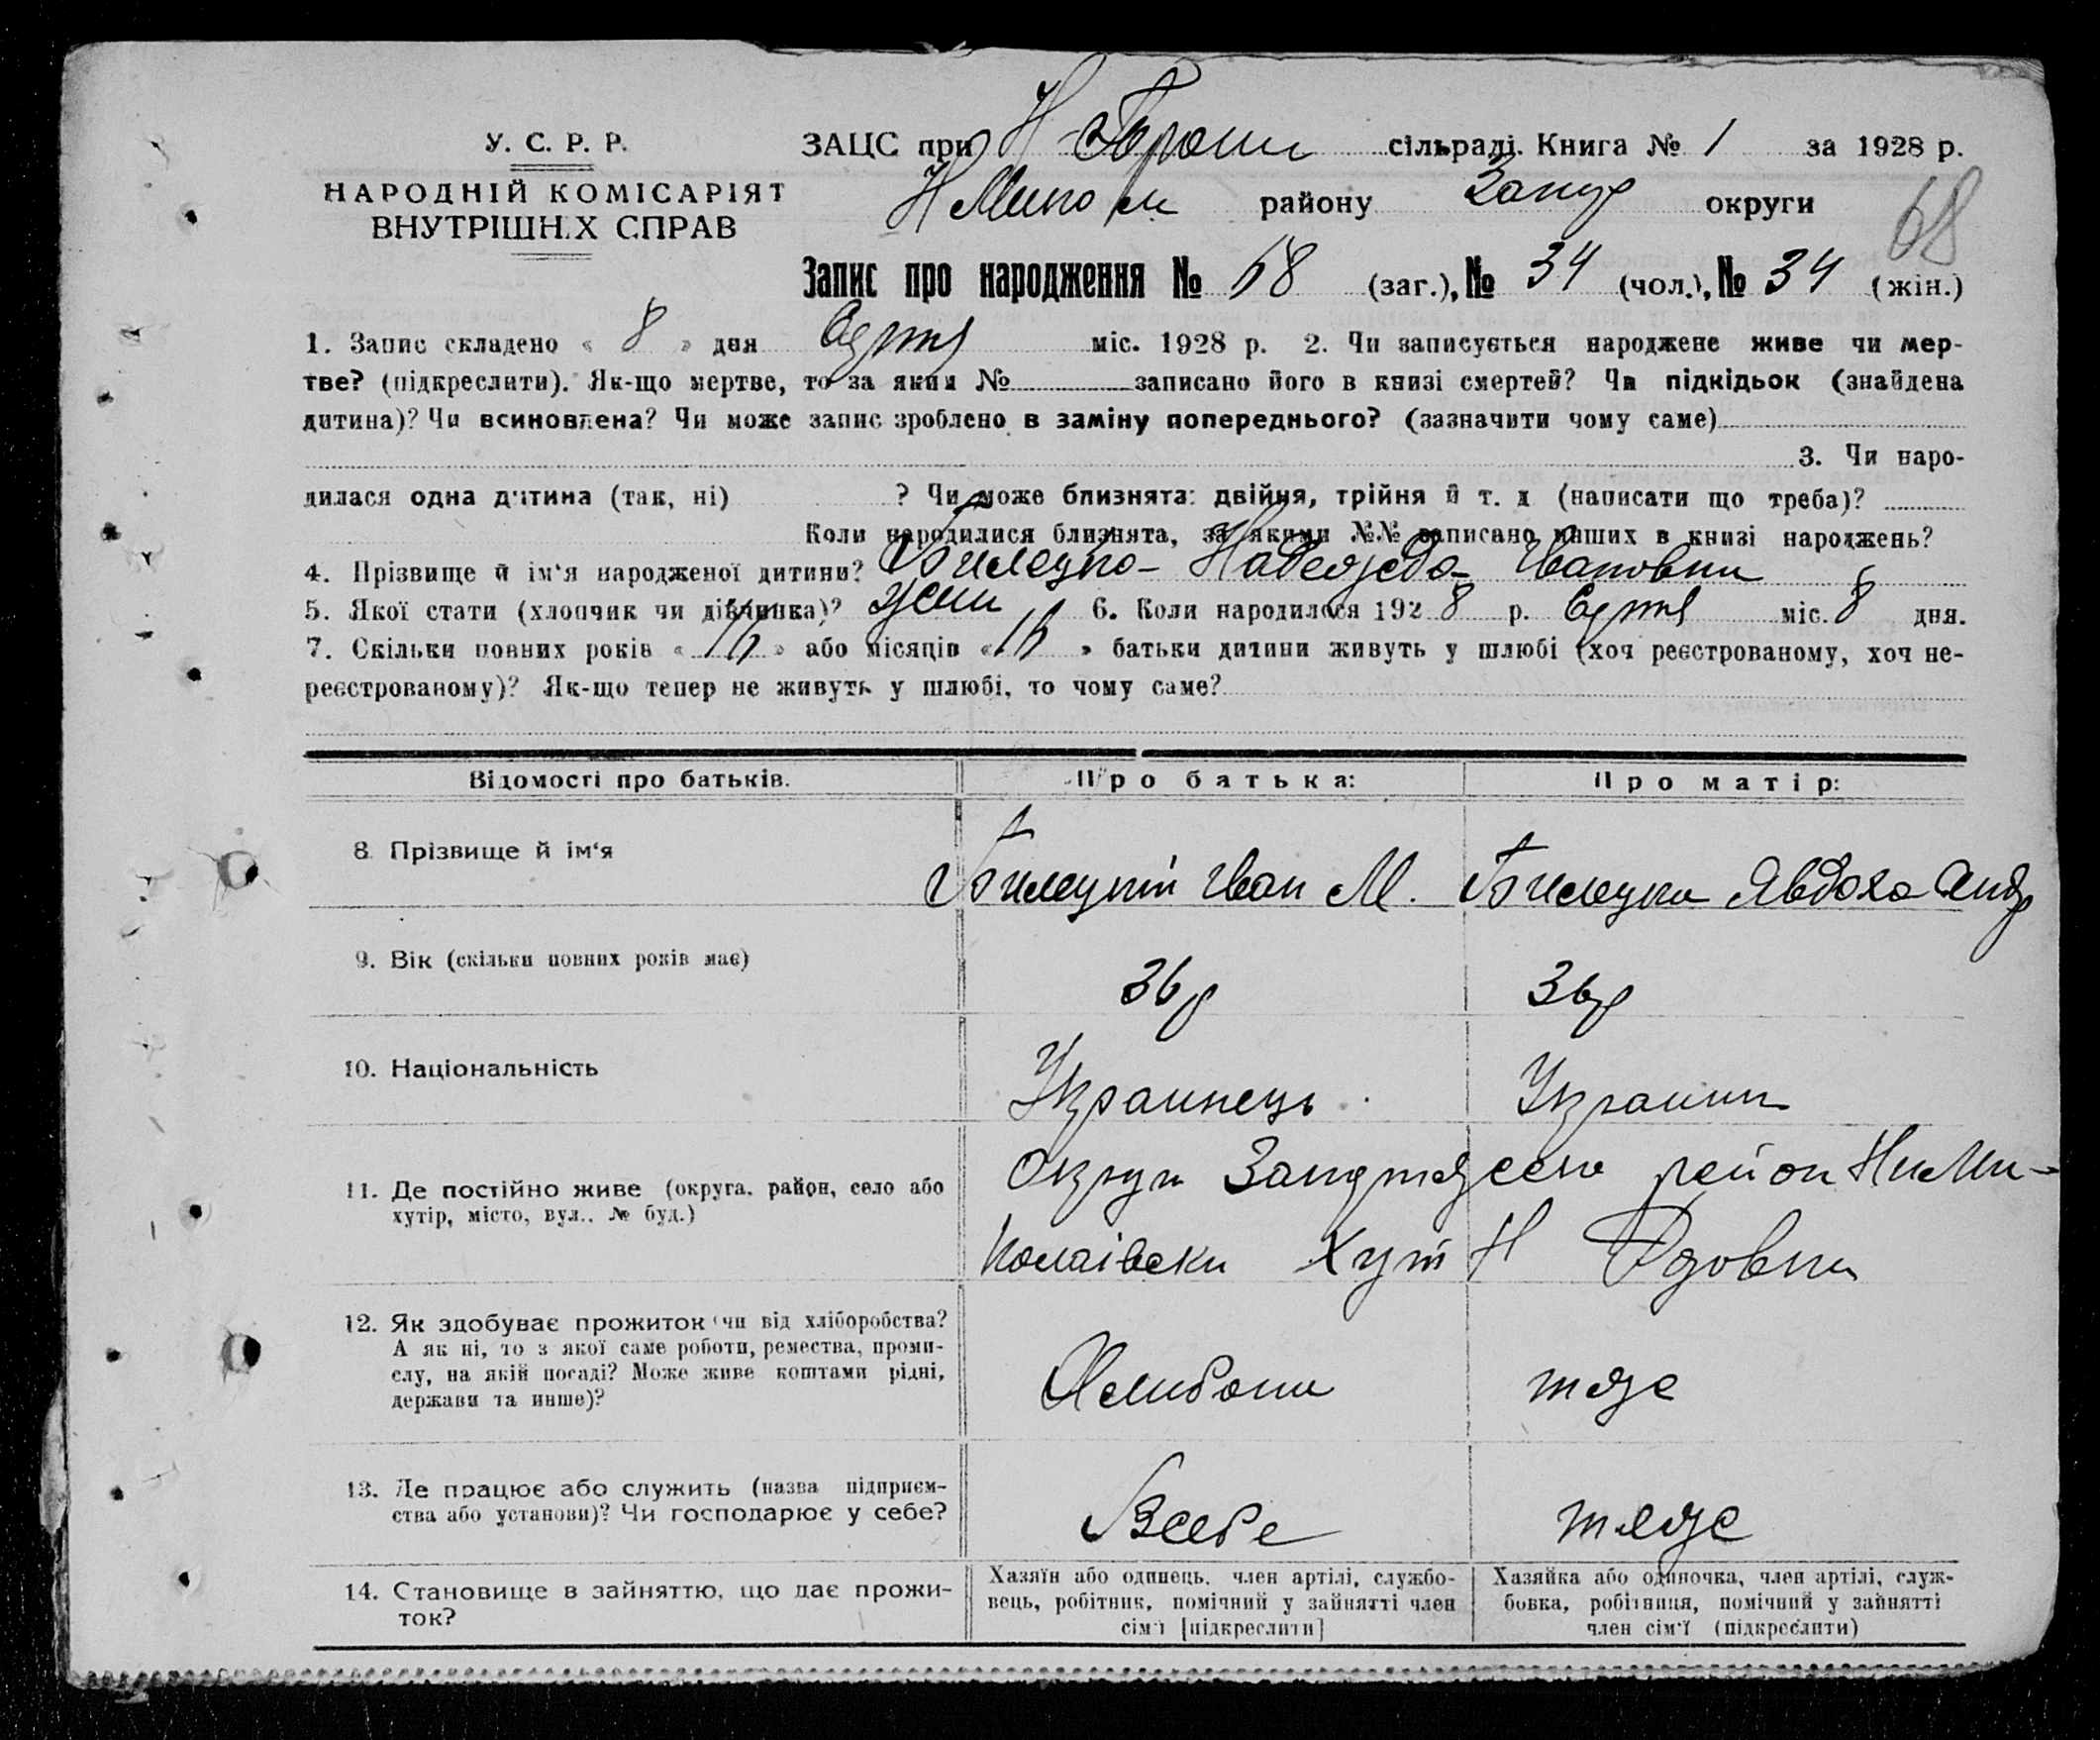 У. С. Р. Р.
НАРОДНІЙ КОМІСАРІЯТ
ВНУТРІШН.Х СПРАВ
ЗАЦС при Н сільраді. Книга № 1 за 1928 р.
району Запор округи
68
Запис про народження № 68 (заг.), № 34 (чол.), № 34 (жін.)
1. Запис складено « 8 » дня міс. 1928 р. 2. Чи записується народжене живе чи мер-
тве? (підкреслити). Як-що мертве, то за яким № записано його в книзі смертей? Чи підкідьок (знайдена
дитина)? Чи всиновлена? Чи може запис зроблено в заміну попереднього? (зазначити чому саме)
3. Чи наро-
дилася одна дитина (так, ні) ? Чи може близнята: двійня, трійня й т. д (написати що треба)?
Коли народилися близнята, за якими №№ записано инших в книзі народжень?
4. Прізвище й ім'я народженої дитини? Билецка Надежда Ивановни
5. Якої стати (хлопчик чи дівчинка)? жени 6. Коли народилося 1928 р. міс. 8 дня.
7. Скільки повних років « 16 » або місяців « 16 » батьки дитини живуть у шлюбі (хоч реєстрованому, хоч не-
реєстрованому)? Як-що тепер не живуть у шлюбі, то чому саме?
Відомості про батьків. Про батька: Про матір:
8. Прізвище й ім'я Билецкий Иван М. Билецка Явдоха Андр
9. Вік (скільки повних років має) 36 р 36 р
10. Національність Украинець Украинк
11. Де постійно живе (округа, район, село або
хутір, місто, вул., № буд.)
Округи район НиМи-
колаівски Хут Н
12. Як здобуває прожиток чи від хліборобства?
А як ні, то з якої саме роботи, ремества, проми-
слу, на якій посаді? Може живе коштами рідні,
держави та инше)?
тоже
13. Де працює або служить (назва підприєм-
ства або установи)? Чи господарює у себе?
Всебе тоже
14. Становище в зайняттю, що дає прожи-
ток?
Хазяїн або одинець, член артілі, службо-
вець, робітник, помічний у зайнятті член
сім'ї [підкреслити]
Хазяйка або одиночка, член артілі, служ-
бовка, робітниця, помічний у зайнятті
член сім'ї (підкреслити)